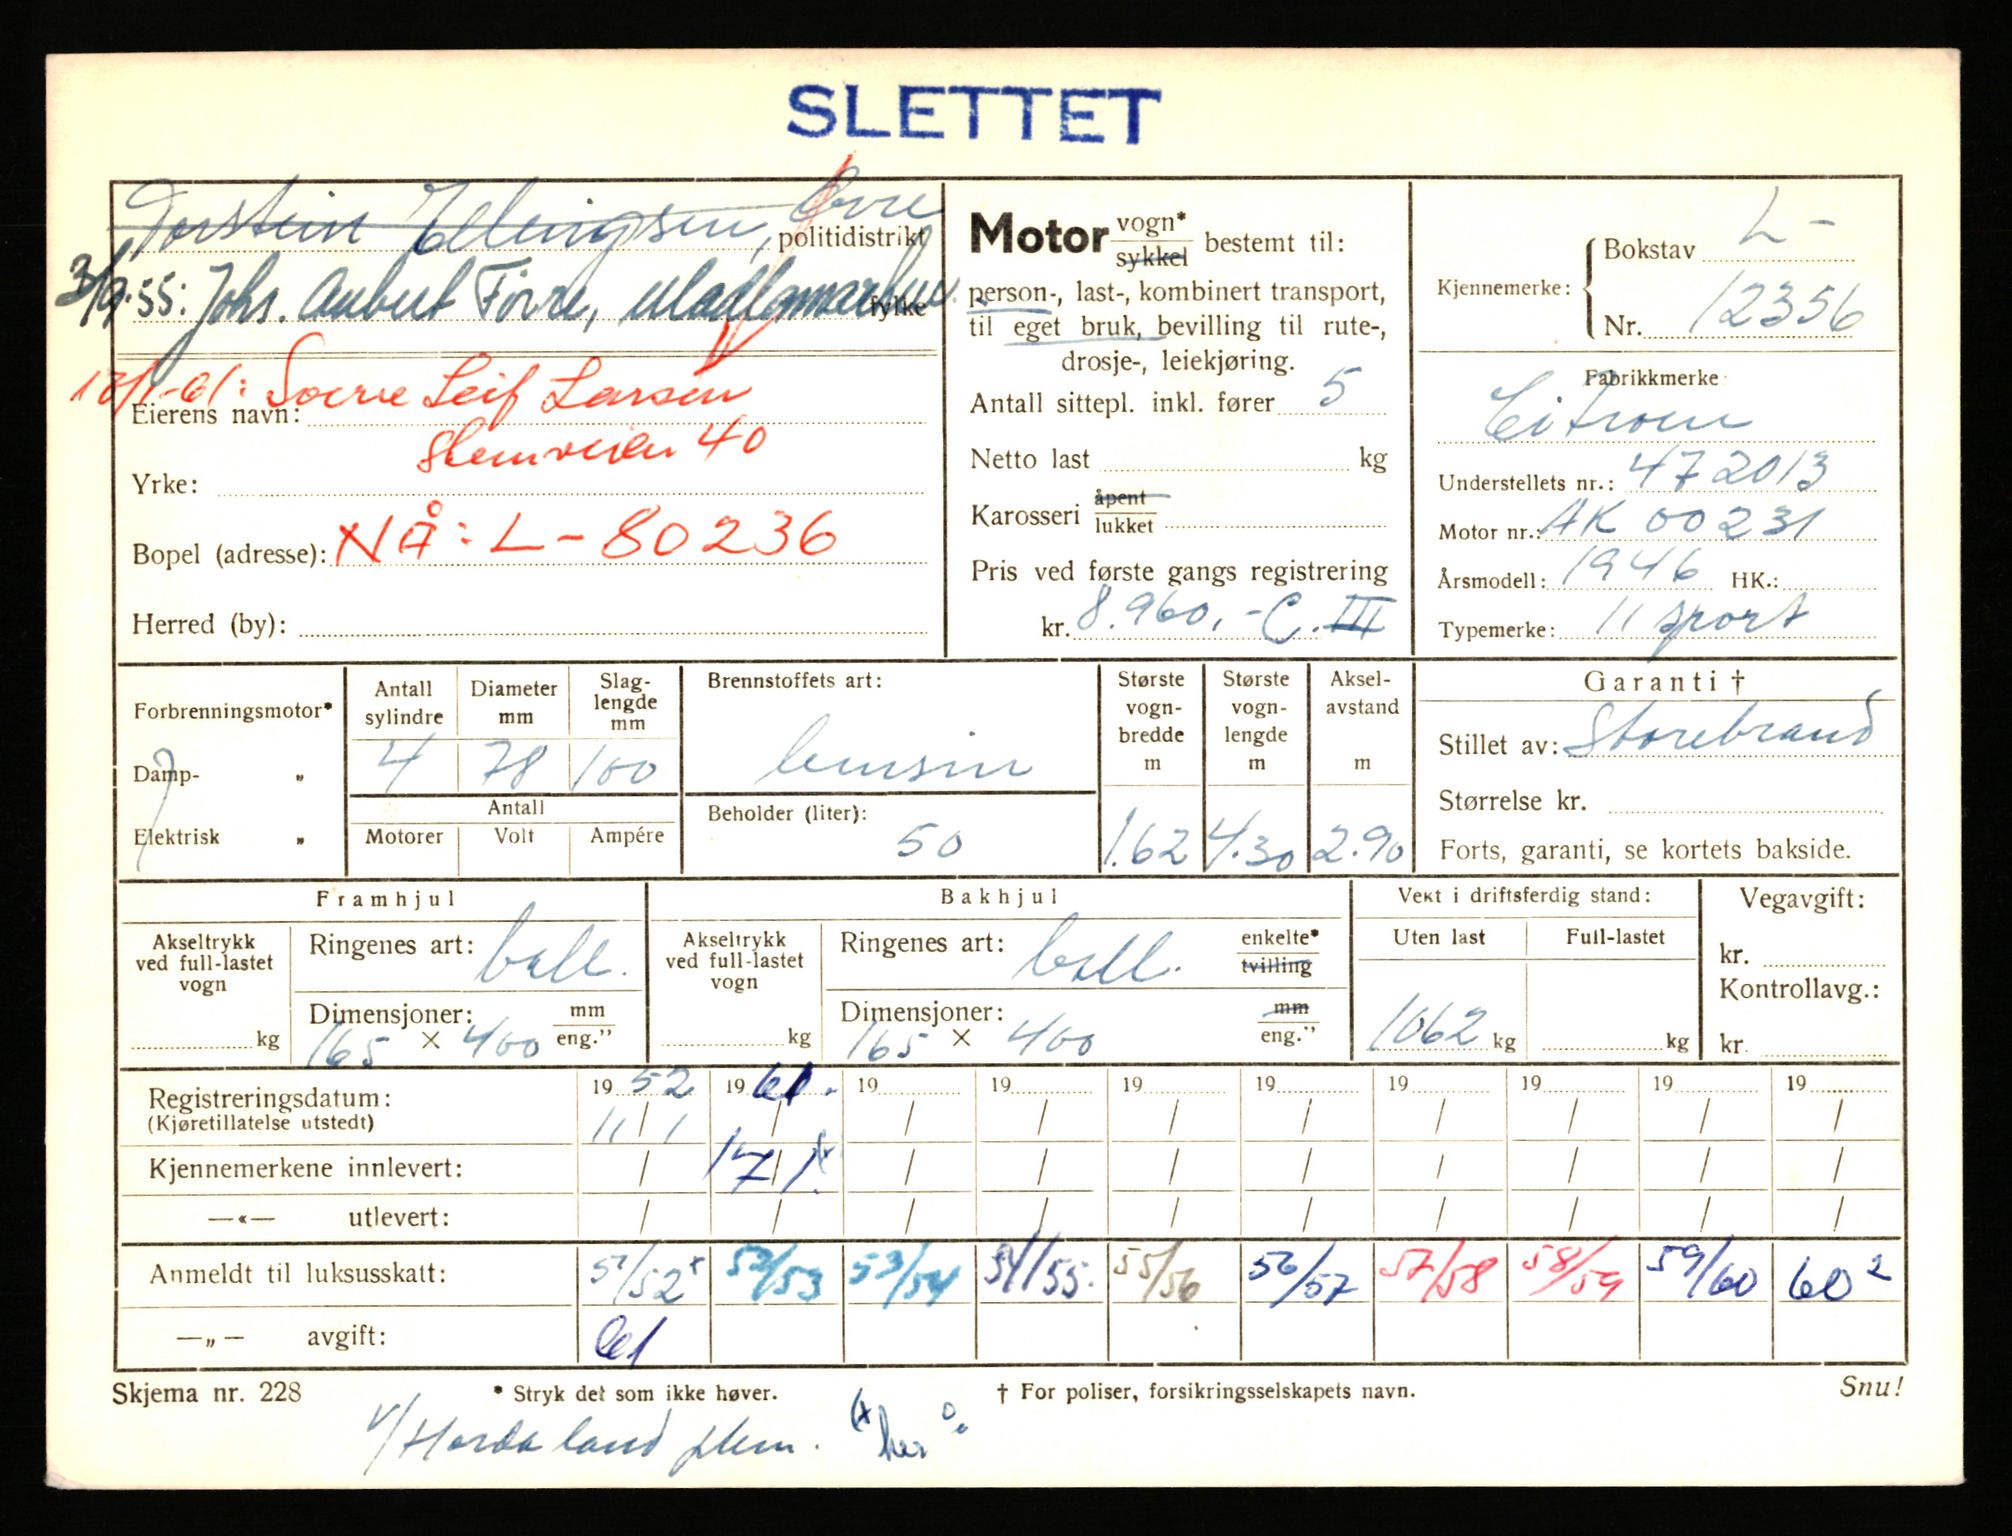 SLETTET
Torstein Ellingsen, politidistrikt
3/9.55: Johs. Aubert Førre, fylke
Motor vogn* sykkel bestemt til:
person-, last-, kombinert transport,
til eget bruk, bevilling til rute-,
drosje-, leiekjøring.
Antall sittepl. inkl. fører 5
Netto last kg
Karosseri åpent lukket
Pris ved første gangs registrering
kr. 8.960,- C. III
Kjennemerke: Bokstav L-
Nr. 12356
Fabrikkmerke
Citroen
Understellets nr.: 472013
Motor nr.: AK 00231
Årsmodell: 1946 HK.:
Typemerke: 11 sport
Leif Larsen
Eierens navn:
40
Yrke:
Bopel (adresse): NÅ: L-80236
Herred (by):
Forbrenningsmotor*
Damp- „
Elektrisk „
Antall sylindre 4
Diameter mm 78
Slag-lengde mm 100
Antall
Motorer Volt Ampére
Brennstoffets art:
bensin
Beholder (liter):
50
Største vogn-bredde m 1.62
Største vogn-lengde m 4.30
Aksel-avstand m 2.90
Garanti †
Stillet av: Storebrand
Størrelse kr.
Forts, garanti, se kortets bakside.
Framhjul
Akseltrykk ved full-lastet vogn kg
Ringenes art: ball.
Dimensjoner: mm eng.”
165 × 400
Bakhjul
Akseltrykk ved full-lastet vogn kg
Ringenes art: ball. enkelte* tvilling
Dimensjoner: mm eng.”
165 × 400
Vekt i driftsferdig stand:
Uten last Full-lastet
1062 kg kg
Vegavgift:
kr.
Kontrollavg.:
kr.
Registreringsdatum: 19 52 19 61. 19 19 19 19 19 19 19 19
(Kjøretillatelse utstedt) 11/1 / / / / / / / / /
Kjennemerkene innlevert: / 17/1 / / / / / / / /
—«— utlevert: / / / / / / / / / /
Anmeldt til luksusskatt: 51/52 52/53 53/54 54/55. 55/56 56/57 57/58 58/59 59/60 60 2
—„— avgift: 61
Skjema nr. 228 * Stryk det som ikke høver. † For poliser, forsikringsselskapets navn. Snu!
v/Hordaland